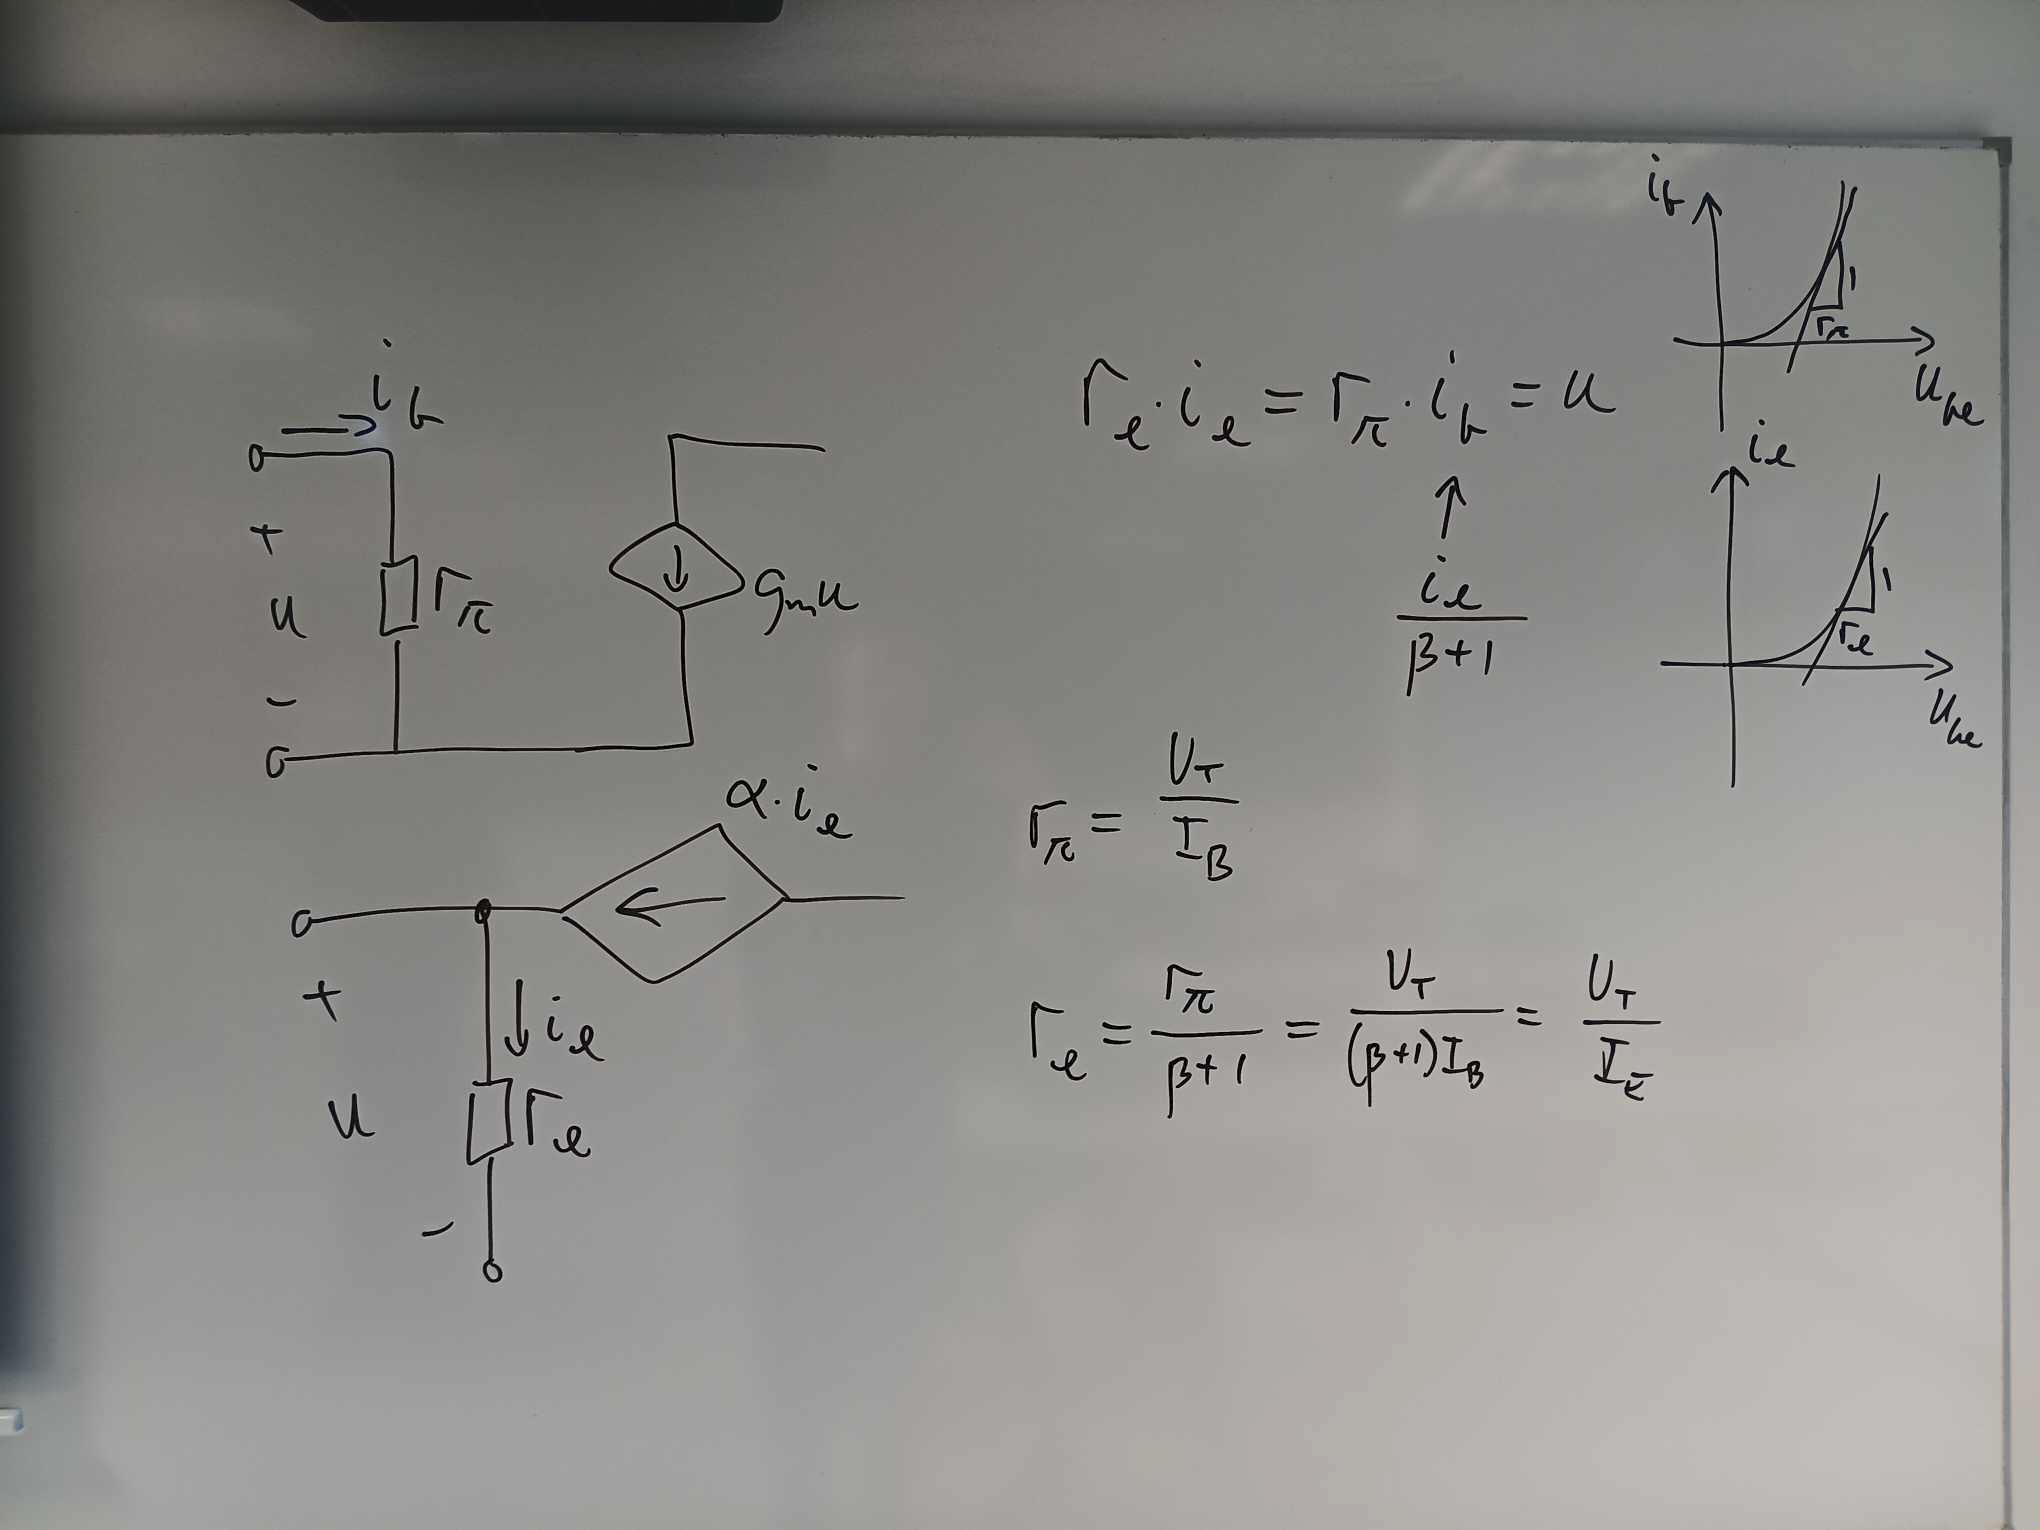 i_b
+
u
-
r_π
g_m u
α · i_e
+
u
-
i_e
r_e
r_e · i_e = r_π · i_b = u
↑
i_e / (β+1)
r_π = U_T / I_B
r_e = r_π / (β+1) = U_T / ((β+1) I_B) = U_T / I_E
i_b
1
r_π
u_be
i_e
1
r_e
u_be